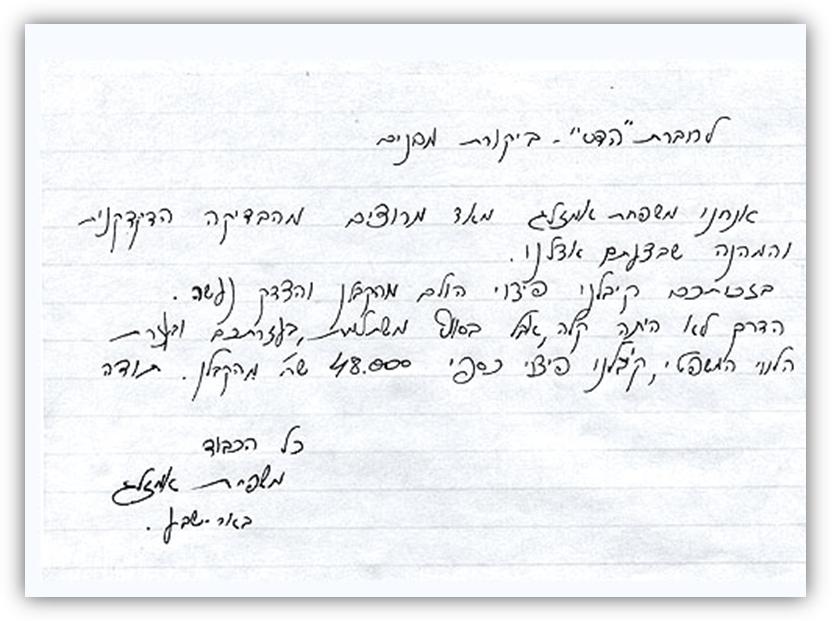 לחברת "הדס" - ביקורת מבנים
אנחנו משפחת אמזלג מאד מרוצים מהבדיקה הדקדקנית
והמהנה שבצעתם אצלנו.
בזכותכם קיבלנו פיצוי הולם מהקבלן והצדק נעשה.
הדרך לא היתה קלה, אבל בסוף משתלמת, בעזרתכם ובעזרת
הלווי המשפטי, קיבלנו פיצוי כספי 48.000 ש"ח מהקבלן. תודה
כל הכבוד
משפחת אמזלג
באר-שבע.